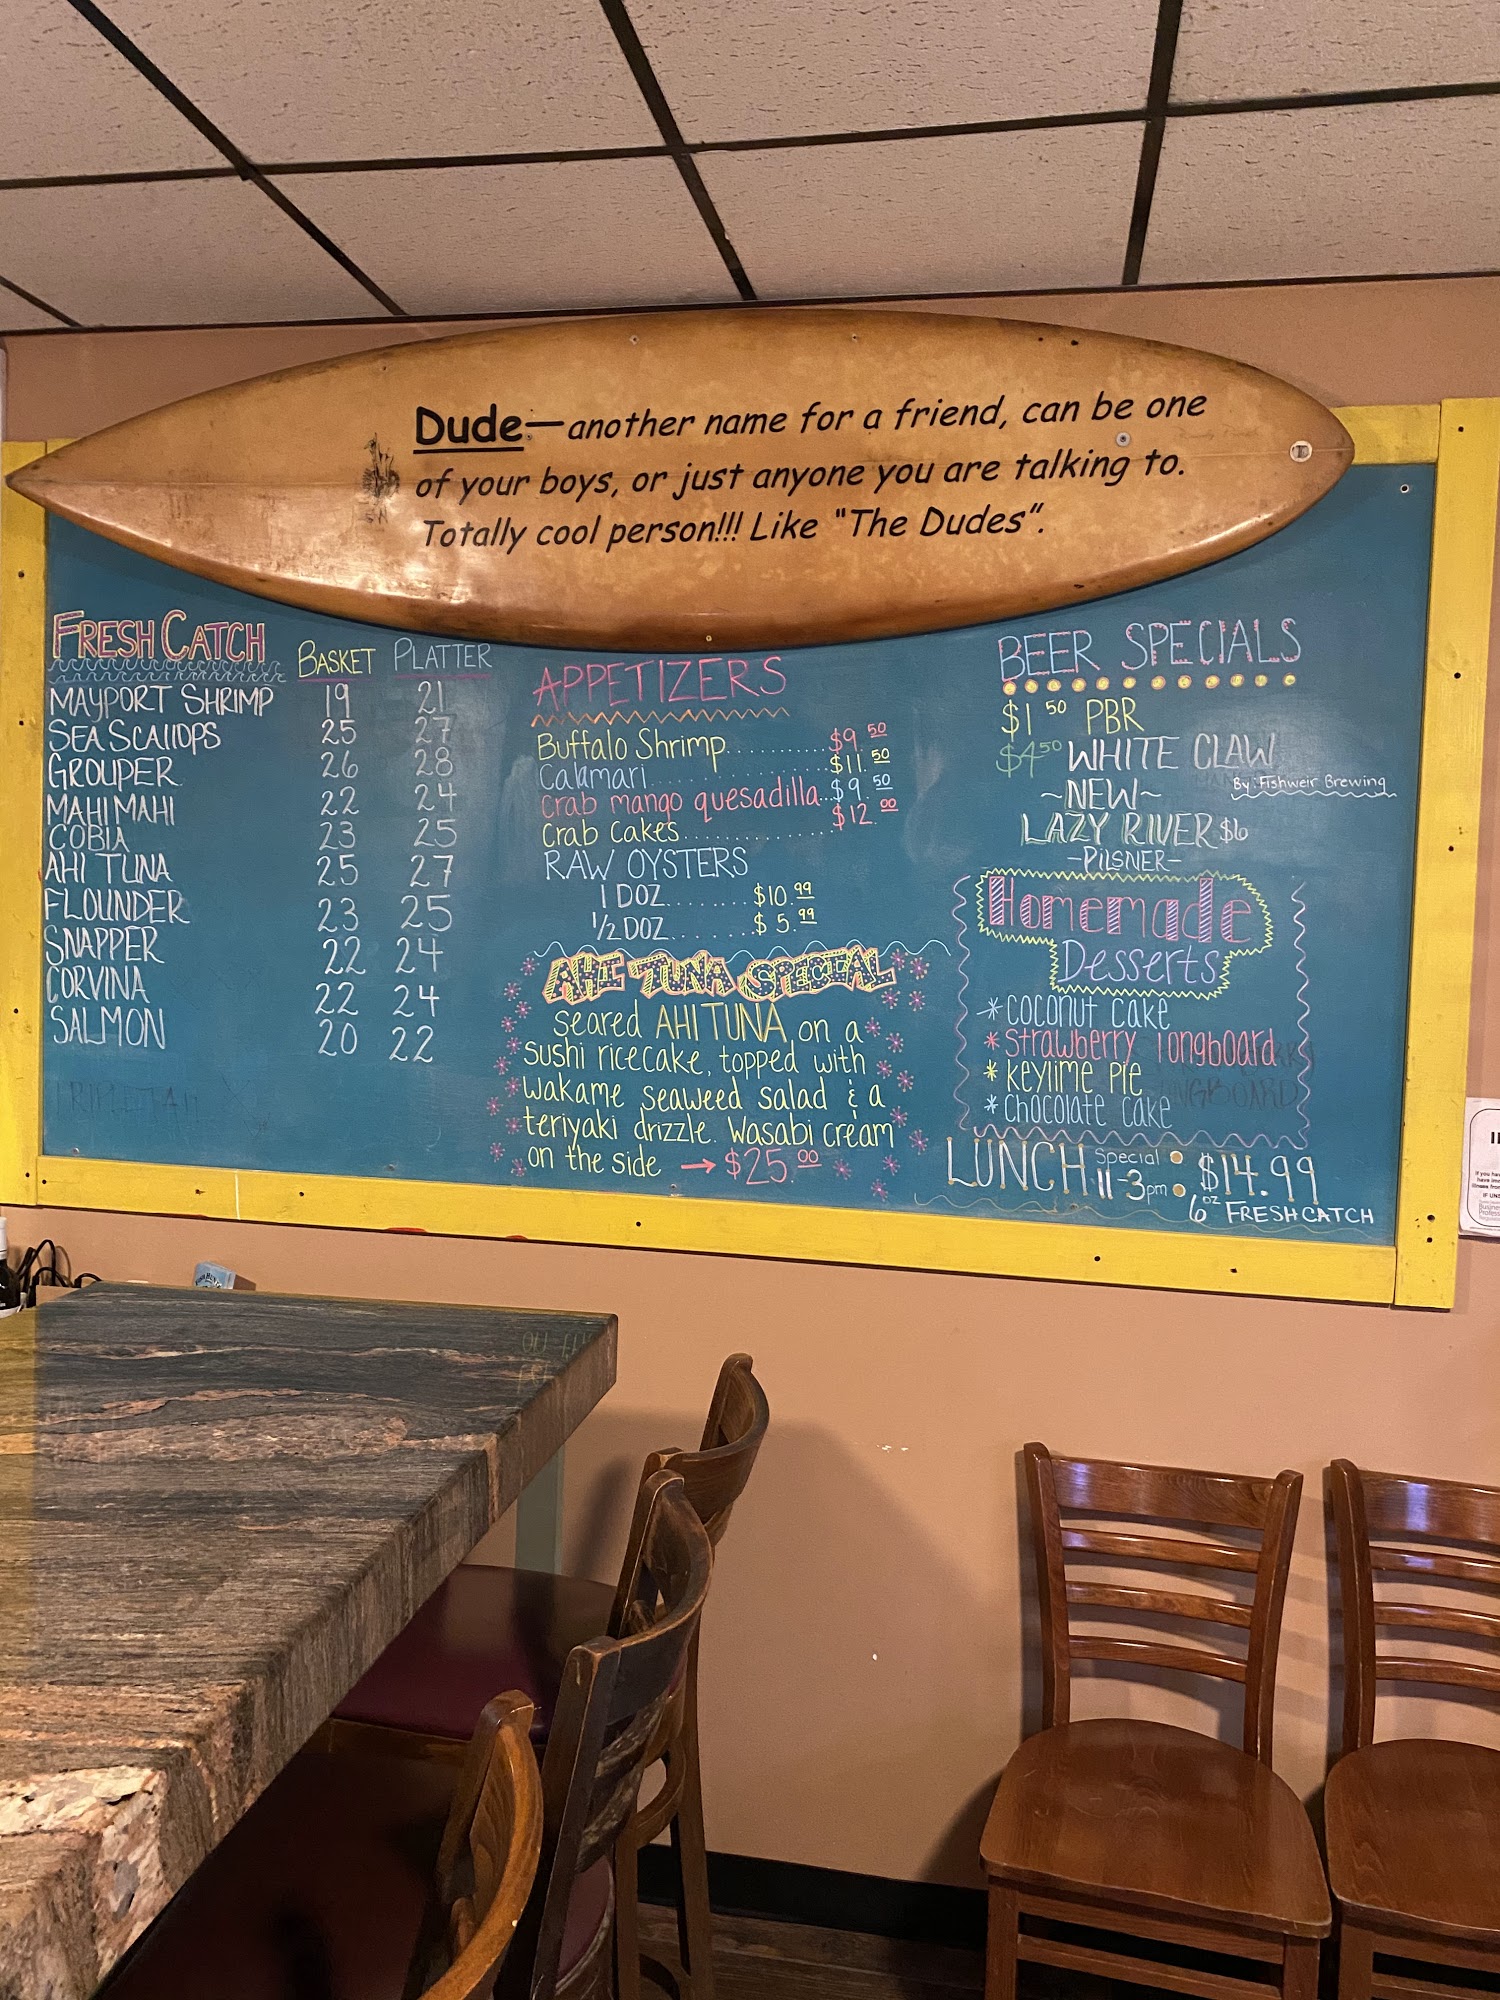 Dude—another name for a friend, can be one
of your boys, or just anyone you are talking to.
Totally cool person!!! Like "The Dudes".
FRESH CATCH BASKET PLATTER
MAYPORT SHRIMP 19 21
SEA SCALLOPS 25 27
GROUPER 26 28
MAHI MAHI 22 24
COBIA 23 25
AHI TUNA 25 27
FLOUNDER 23 25
SNAPPER 22 24
CORVINA 22 24
SALMON 20 22
APPETIZERS
Buffalo Shrimp.......... $9.50
Calamari.................. $11.50
Crab mango quesadilla... $9.50
Crab Cakes............... $12.00
RAW OYSTERS
1 DOZ......... $10.99
1/2 DOZ....... $5.99
AHI TUNA SPECIAL
seared AHI TUNA on a
sushi rice cake, topped with
wakame seaweed salad & a
teriyaki drizzle. Wasabi cream
on the side → $25.00
BEER SPECIALS
$1 50 PBR
$4 50 WHITE CLAW
By: Fishweir Brewing
~NEW~
LAZY RIVER $6
-PILSNER-
Homemade
Desserts
*coconut cake
*strawberry longboard
*keylime pie
*chocolate cake
LUNCH Special 11-3pm : $14.99
6oz FRESH CATCH